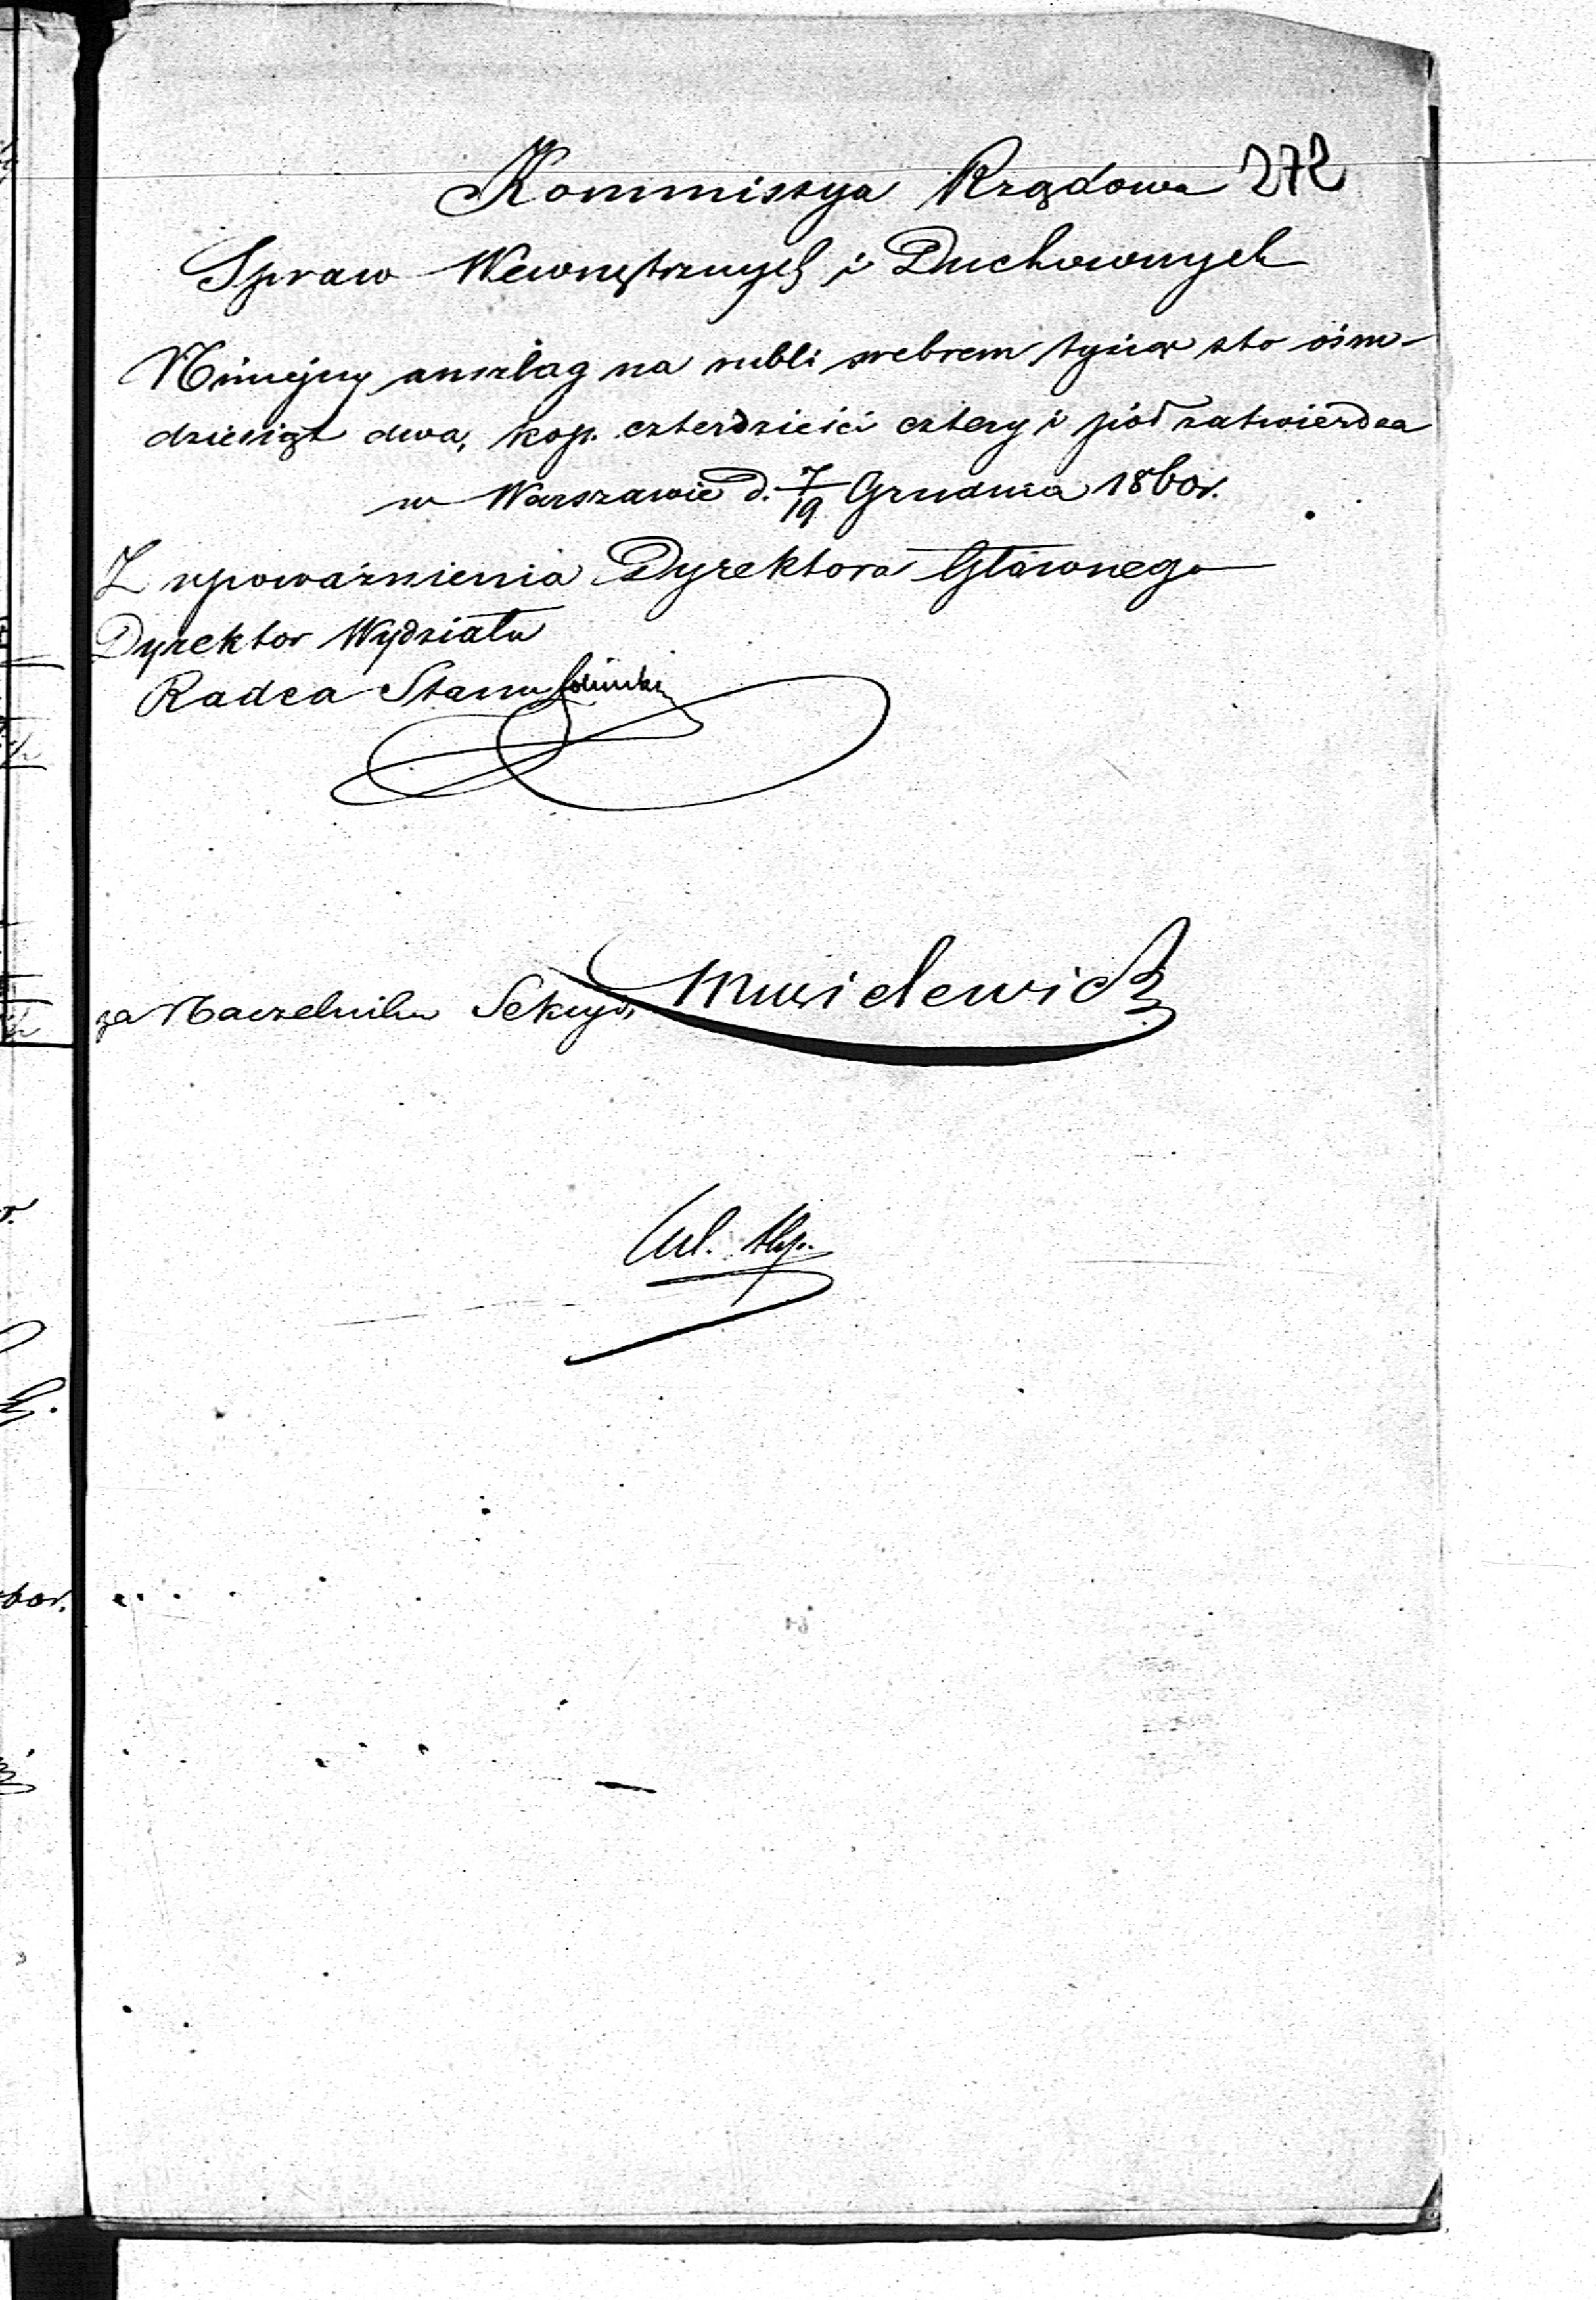 272
Kommissya Rządowa
Spraw Wewnętrznych i Duchownych
Niniejszy anszlag na rubli srebrem tysiąc sto ośm-
dziesiąt dwa, kop. czterdzieści cztery i pół zatwierdza
w Warszawie d. 7/19 Grudnia 1860r.
Z upoważnienia Dyrektora Głównego
Dyrektor Wydziału
Radca Stanu
za Naczelnika Sekcyi